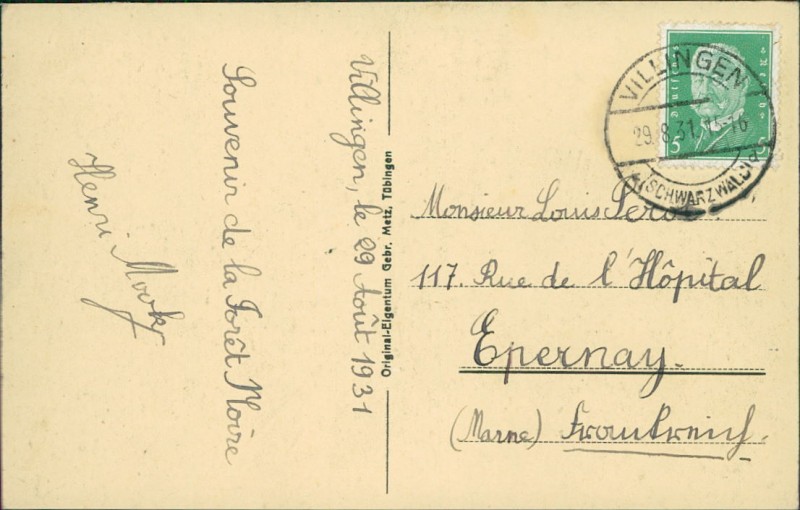 Villingen, le 29 Août 1931
Souvenir de la Forêt Noire
Henri
Original-Eigentum Gebr. Metz, Tübingen
Deutsches Reich
5 5
VILLINGEN
29.8.31.
(SCHWARZWALD)
Monsieur Louis
117. Rue de l'Hôpital
Epernay.
(Marne) Frankreich.